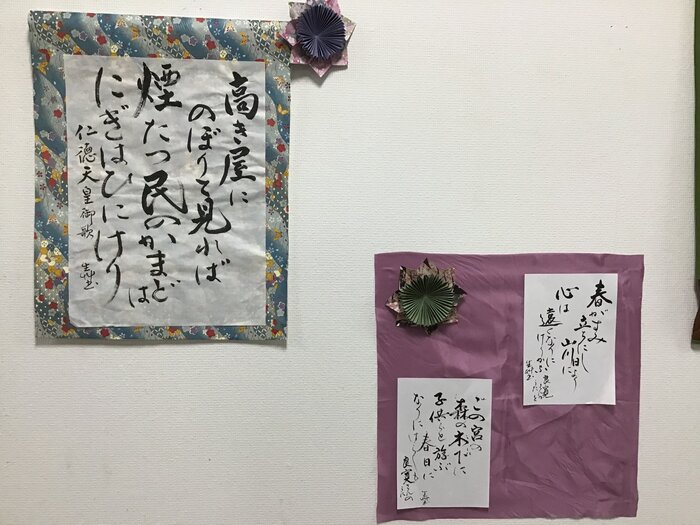 高き屋に
のぼりて見れば
煙たつ民のかまどは
にぎはひにけり
仁徳天皇御歌
春がすみ
立ちにし日より
山川に
心は
遠く
なりに
けるかな
良寛
この宮の
森の木下に
子供らと遊ぶ
春日に
なりにけらしも
良寛